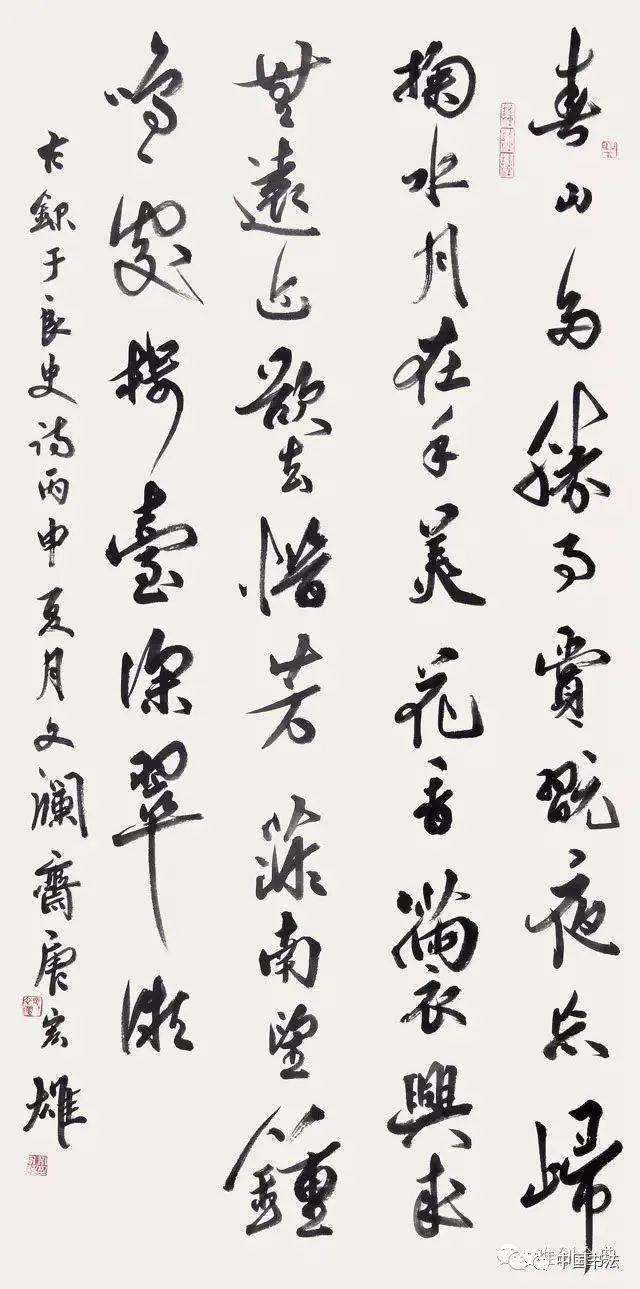 春山多勝事賞翫夜忘歸
掬水月在手弄花香滿衣興來
無遠近欲去惜芳菲南望鍾
鳴處樓臺深翠微
右錄于良史詩丙申夏月文瀾齋唐宏雄
中国书法